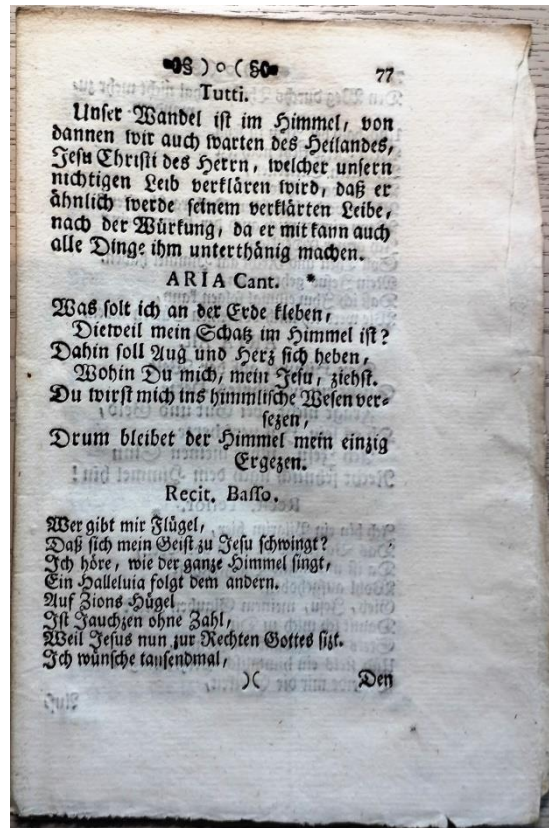 § ) o ( § 77
Tutti.
Unser Wandel ist im Himmel, von
dannen wir auch warten des Heilandes,
Jesu Christi des Herrn, welcher unsern
nichtigen Leib verklären wird, daß er
ähnlich werde seinem verklärten Leibe,
nach der Würkung, da er mit kann auch
alle Dinge ihm unterthänig machen.
ARIA Cant. *
Was solt ich an der Erde kleben,
Dieweil mein Schatz im Himmel ist?
Dahin soll Aug und Herz sich heben,
Wohin Du mich, mein Jesu, ziehst.
Du wirst mich ins himmlische Wesen ver-
sezen,
Drum bleibet der Himmel mein einzig
Ergezen.
Recit. Basso.
Wer gibt mir Flügel,
Daß sich mein Geist zu Jesu schwingt?
Ich höre, wie der ganze Himmel singt,
Ein Halleluia folgt dem andern.
Auf Zions Hügel
Ist Jauchzen ohne Zahl,
Weil Jesus nun zur Rechten Gottes sizt.
Ich wünsche tausendmal,
)( Den